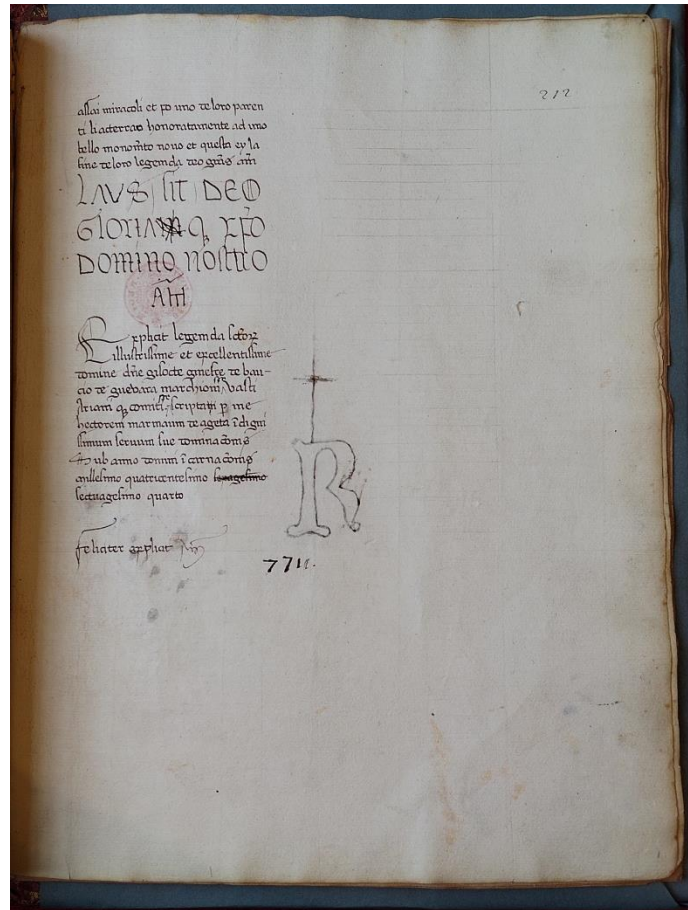 212
assai miracoli et po uno de loro paren
ti li acterrao honoratamente ad uno
bello monomēto novo et questa ey la
fine de loro legenda deo grās am̄
LAUS SIT DEO
GLORIA q, xpō
DOMINO nostro
AM̄
Explicit legenda sctōr
illustrissime et excellentissime
domine dn̄e gilocte ginefre de bau-
cio de guevara marchioniss Vasti
Ariam q, comitisse scripta p me
hectorem marmaum de ageta īdigni
ssimum servum sue dominacōnis
Sub anno domini īcarnacōnis
millesimo quatricentesimo sexagesimo
septuagesimo quarto
feliciter explicit
R
7711.